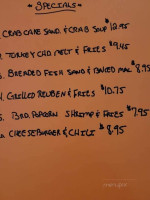 SPECIALS
CRAB CAKE SAND. & CRAB SOUP $12.95
TURKEY CHD MELT & FRIES $9.45
BREADED FISH SAND & BAKED MAC 8.95
GRILLED REUBEN & FRIES $10.75
BBQ. POPCORN SHRIMP & FRIES $7.95
CHEESEBURGER & CHILI $8.95